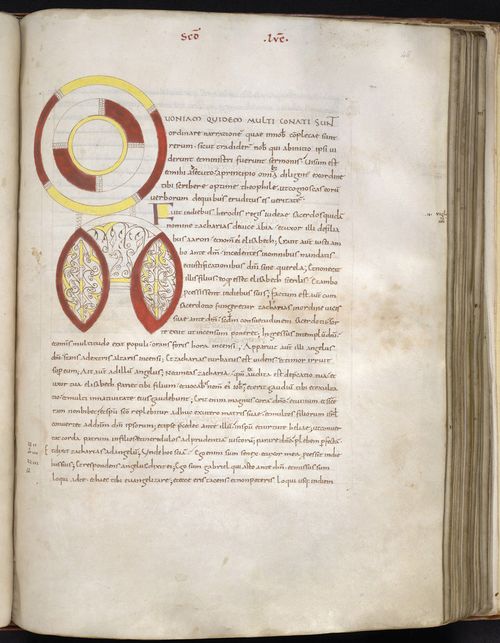 Scdō .lvc̄.
QUONIAM QUIDEM MULTI CONATI SUNT
ordinare narratione quae innob complecae sunt
rerum. sicut tradider nob qui abinitio ipsi ui
derunt &ministri fuerunt sermonis. Uisum est
&mihi assecuto aprincipio omnia diligent exordine
tibi scribere optime theophile, utcognoscas eorū
uerborum dequibus eruditus es ueritate.
Fuit indiebus herodis regis iudeae sacerdos quidā
nomine zacharias deuice abia, &uxor illi defilia
bus aaron, &nomen ei elisabeth; Erant aut iusti am
bo ante dm̄, incedentes inomnibus mandatis
&iustificationibus dn̄i sine querela; &nonerat
illis filius eo qd esset elisabeth sterilis, &ambo
processissent indiebus suis; Factum est aut cum
sacerdotio fungeretur zacharias inordine uicis
suae ante dm̄, scdm consuetudinem sacerdotii sor
te exiit ut incensum poneret; Ingressus intemplū dn̄i,
&omnis multitudo erat populi orans foris hora incensi; Apparuit aut illi angelus
dn̄i stans adextris altaris incensi; &zacharias turbatus est uidens, &timor irruit
sup eum; Ait aut adillū angelus; Netimeas zacharia, qm̄ exaudita est deprecatio tua, &u
xor tua elisabeth pariet tibi filium, &uocabis nomen ei ioh; &erit gaudiū tibi &exulta
tio, &multi innatiuitate eius gaudebunt; Erit enim magnus cora dn̄o, &uinum &sice
ram nonbibet, &spu sco replebitur adhuc exutero matris suae, &multos filiorum isrl
conuertet addn̄m dm̄ ipsorum; &ipse precedet ante illū inspu &uirtute heliae, utconuer
tat corda patrum infilios, &incredulos adprudentia iustorū, parare dn̄o plebem pfectā;
&dixit zacharias adangelū; Unde hoc sciā; Ego enim sum senex, &uxor mea processit indie
bus suis; &respondens angelus dixit ei; Ego sum gabriel qui asto ante dm̄, &missus sum
loqui adte, &haec tibi euangelizare; &ecce eris tacens, &nonpoteris loqui usq; indiem